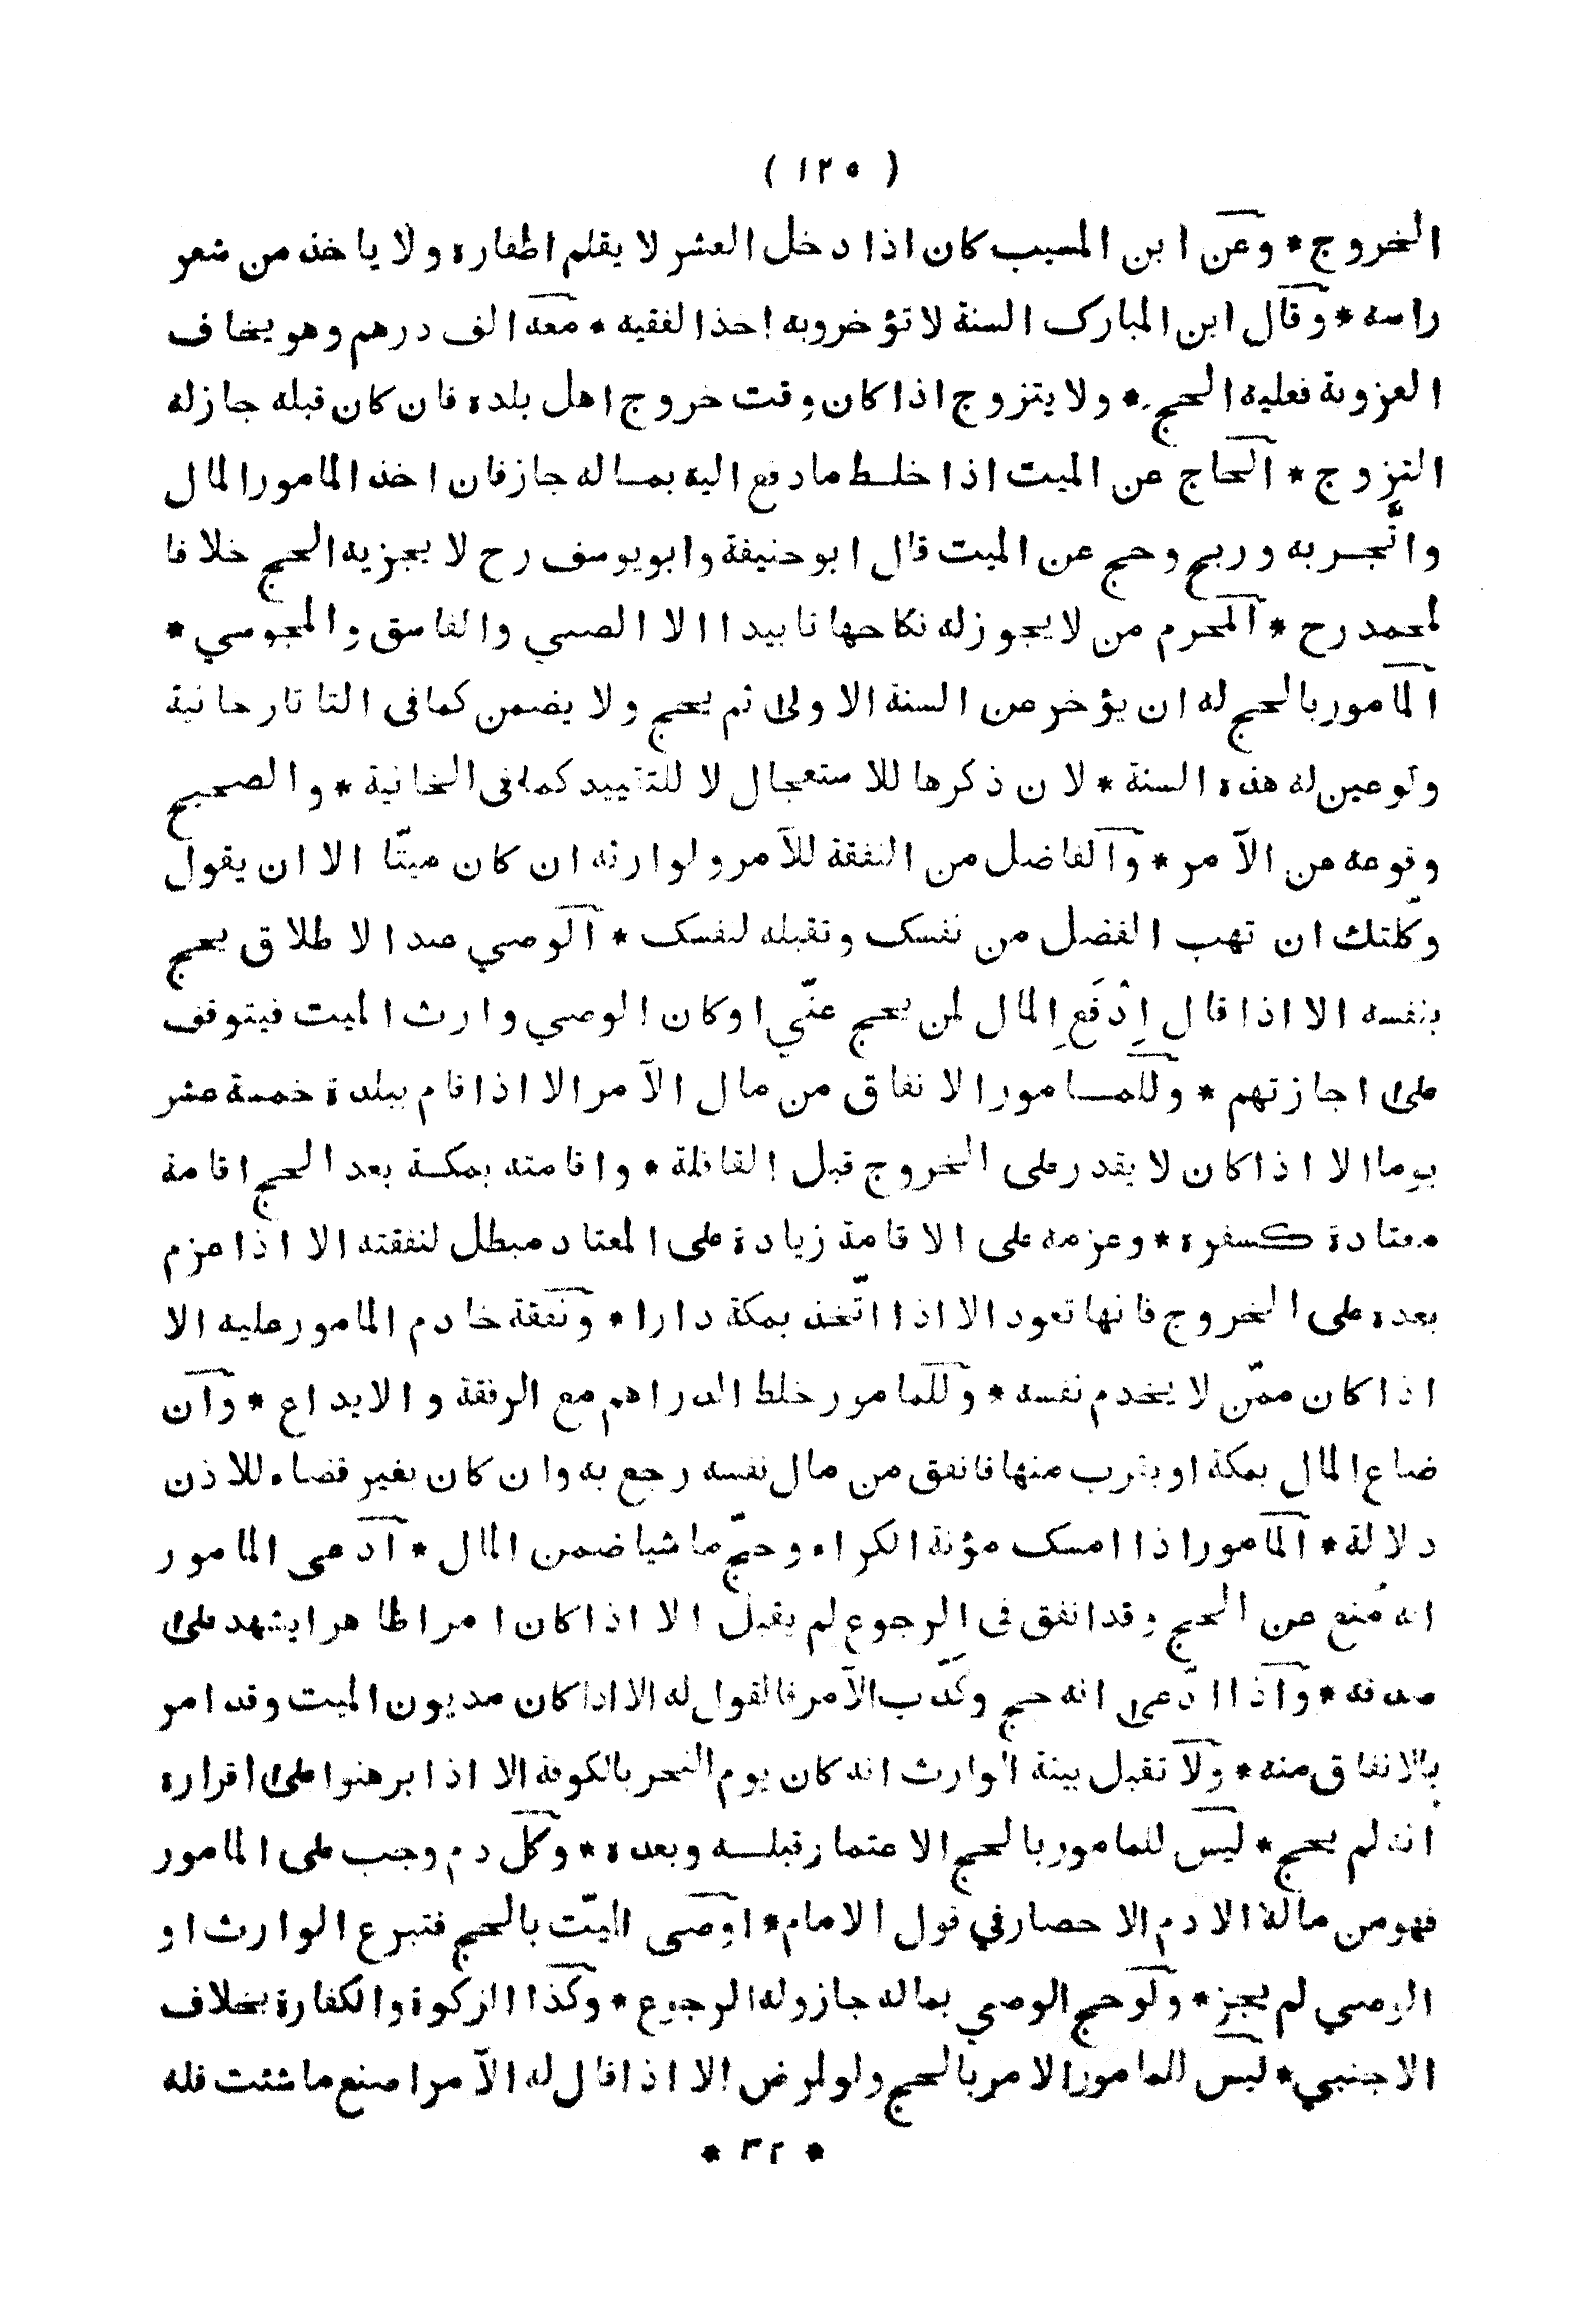 ( ١٢٥ )
الخروج * وعن ابن المسيب كان اذا دخل العشر لا يقلم اظفاره ولا ياخذ من شعر
راسه * وقال ابن المبارك السنة لا تؤخر وبه اخذ الفقيه * معه الف درهم وهو يخاف
العزوبة فعليه الحج * ولا يتزوج اذا كان وقت خروج اهل بلده فان كان قبله جاز له
التزوج * الحاج عن الميت اذا خلط ما دفع اليه بماله جاز فان اخذ المامور المال
واتّجر به وربح وحج عن الميت قال ابو حنيفة وابو يوسف رح لا يجزيه الحج خلافا
لمحمد رح * المحرم من لا يجوز له نكاحها تابيدا الا الصبي والفاسق والمجوسي *
المامور بالحج له ان يؤخر عن السنة الاولى ثم يحج ولا يضمن كما في التاتارخانية
ولو عين له هذه السنة * لان ذكرها للاستعجال لا للتقييد كما في الخانية * والصحيح
وقوعه عن الآمر * والفاضل من النفقة للآمر ولوارثه ان كان ميتّا الا ان يقول
وكّلتك ان تهب الفضل من نفسك وتقبله لنفسك * الوصي عند الاطلاق يحج
بنفسه الا اذا قال اِدْفَعِ المال لمن يحج عنّي او كان الوصي وارث الميت فيتوقف
على اجازتهم * وللمامور الانفاق من مال الآمر الا اذا قام ببلدة خمسة عشر
يوما الا اذا كان لا يقدر على الخروج قبل القافلة * واقامته بمكة بعد الحج اقامة
معتادة كسفره * وعزمه على الاقامة زيادة على المعتاد مبطل لنفقته الا اذا عزم
بعده على الخروج فانها تعود الا اذا اتّخذ بمكة دارا * ونفقة خادم المامور عليه الا
اذا كان ممّن لا يخدم نفسه * وللمامور خلط الدراهم مع الرفقة والايداع * وان
ضاع المال بمكة او بقرب منها فانفق من مال نفسه رجع به وان كان بغير قضاء للاذن
دلالة * المامور اذا امسك مؤنة الكراء وحجّ ماشيا ضمن المال * ادعى المامور
انه مُنع عن الحج وقد انفق في الرجوع لم يقبل الا اذا كان امرا ظاهرا يشهد على
صدقه * واذا ادّعى انه حج وكذّب الآمر فالقول له الا اذا كان مديون الميت وقد امر
بالانفاق منه * ولا تقبل بينة الوارث انه كان يوم النحر بالكوفة الا اذا برهنوا على اقراره
انه لم يحج * ليس للمامور بالحج الاعتمار قبله وبعده * وكل دم وجب على المامور
فهو من ماله الا دم الاحصار في قول الامام * اوصى الميّت بالحج فتبرع الوارث او
الوصي لم يجز * ولو حج الوصي بماله جاز وله الرجوع * وكذا الزكوة والكفارة بخلاف
الاجنبي * ليس للمامور الامر بالحج ولو لمرض الا اذا قال له الآمر اصنع ما شئت فله
* ٣٢ *